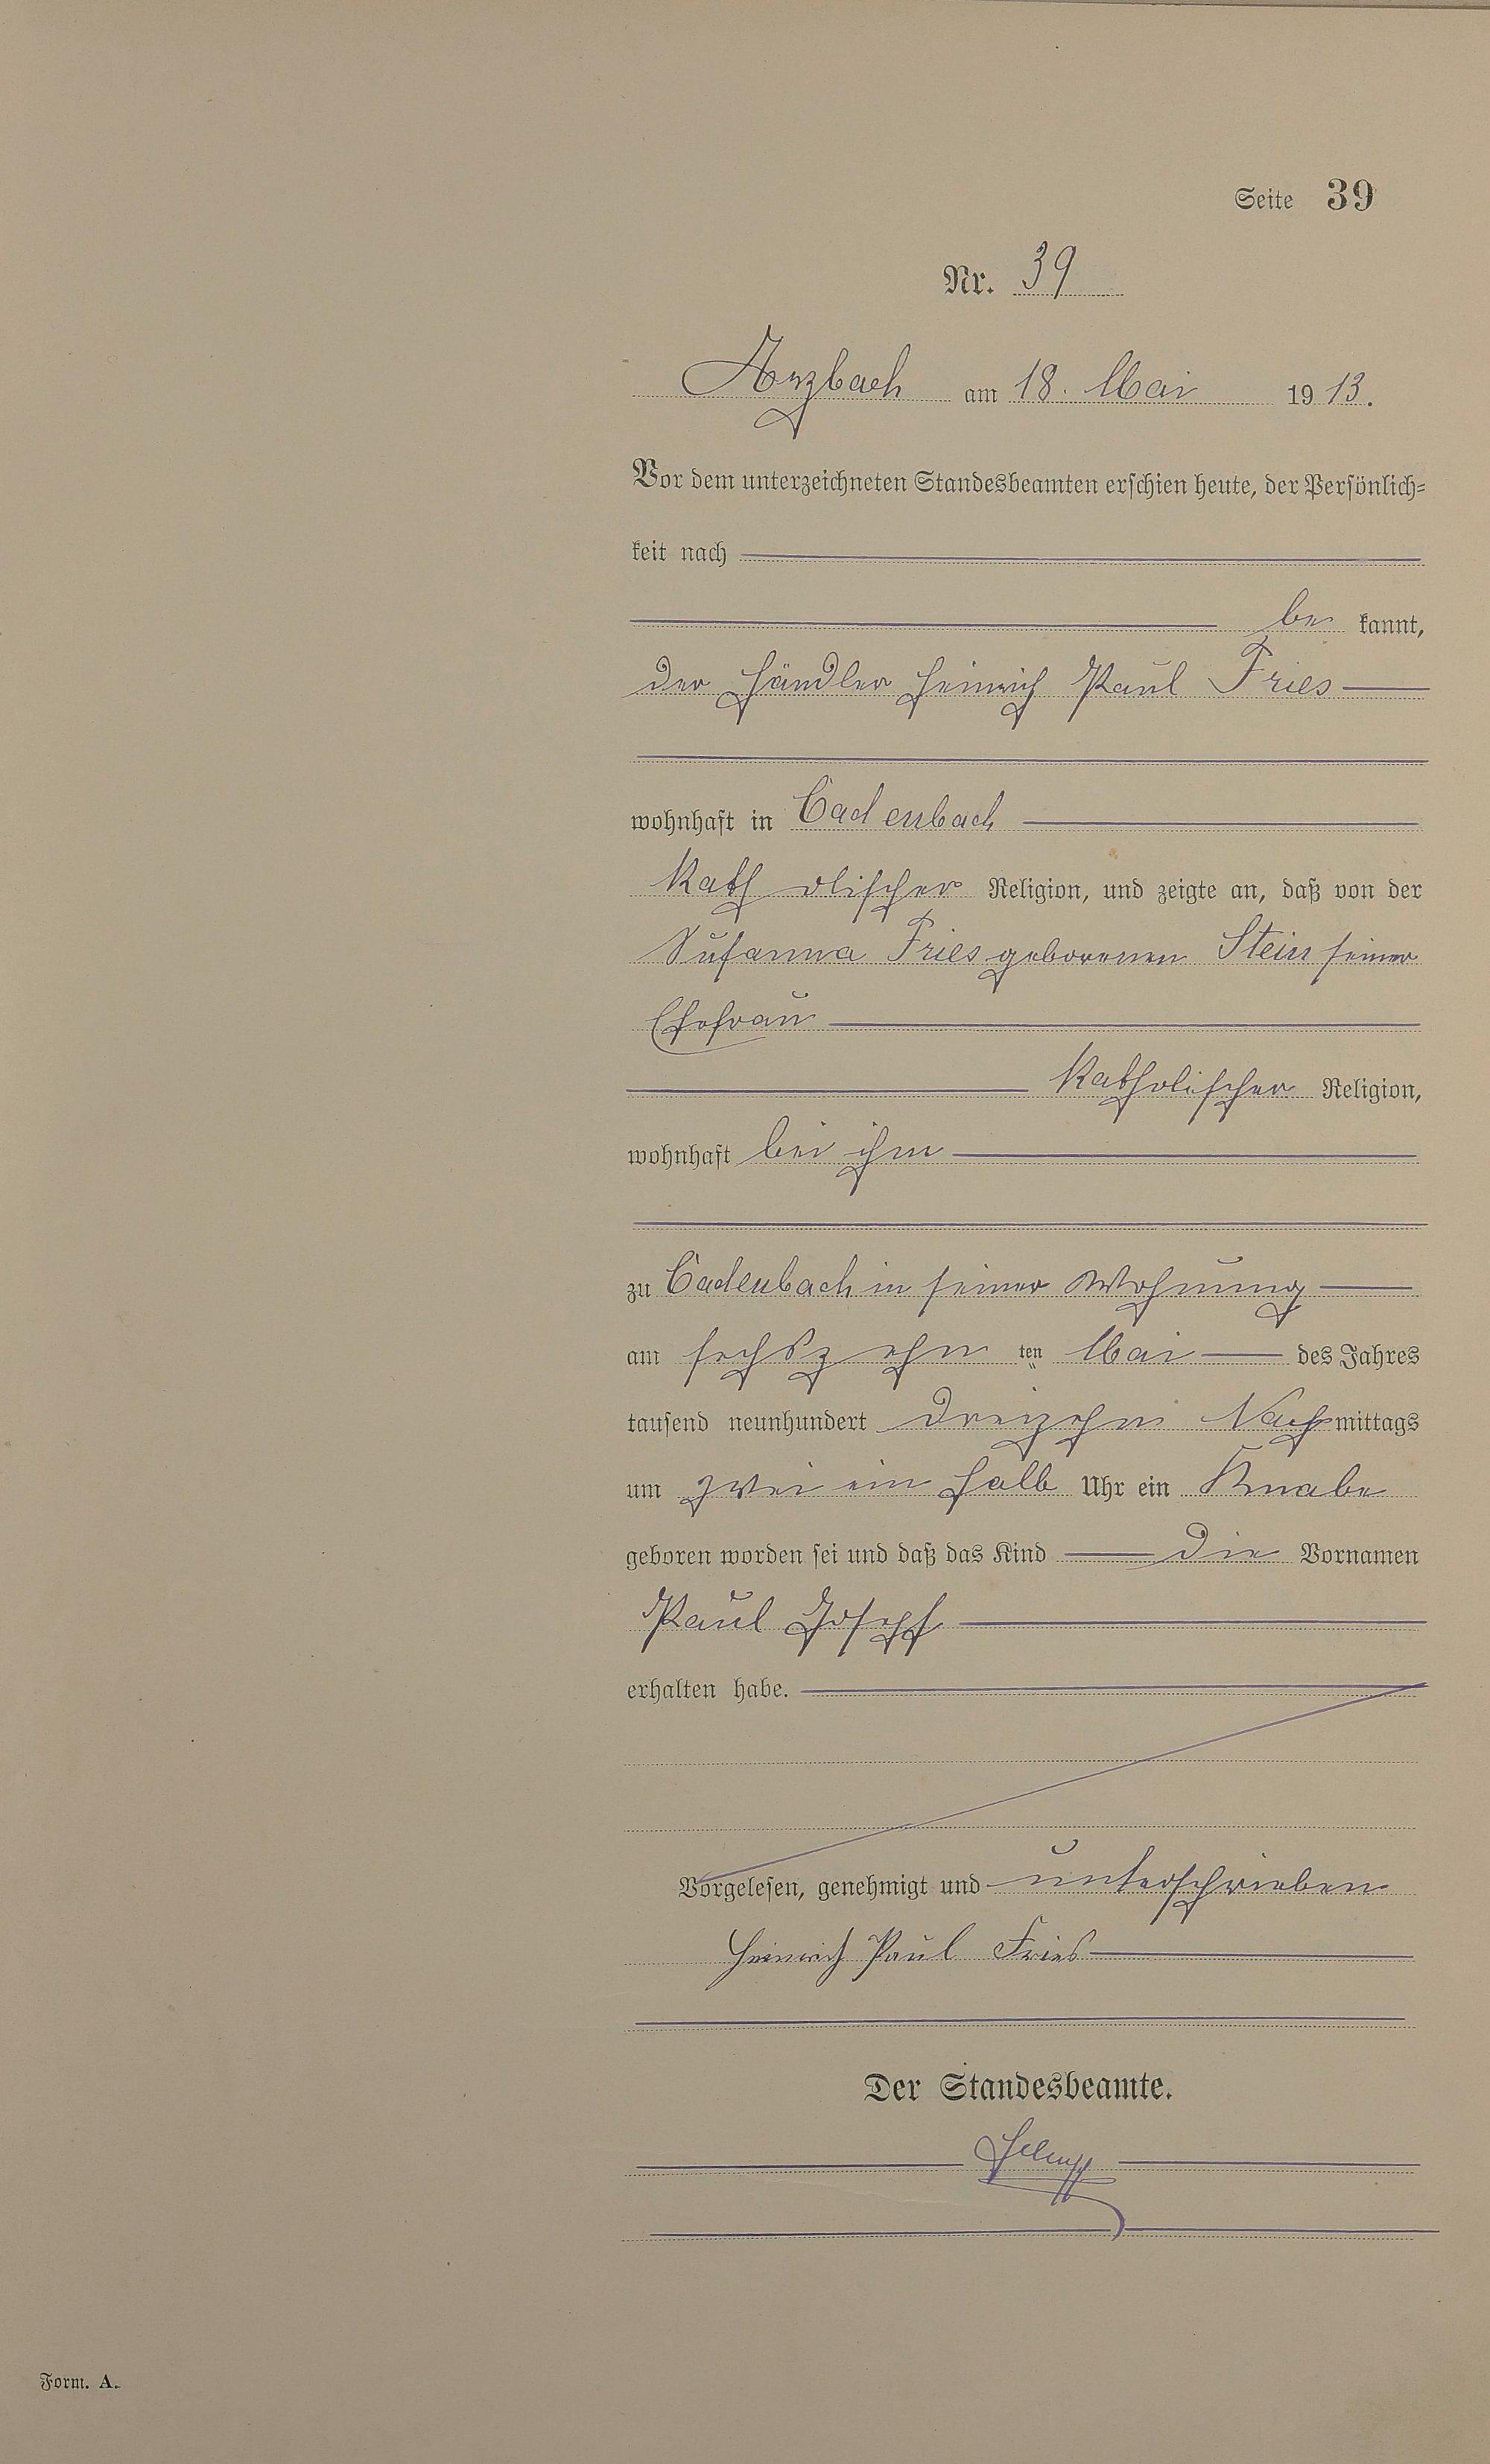 Seite 39
Nr. 39
Arzbach am 18. Mai 1913.
Vor dem unterzeichneten Standesbeamten erschien heute, der Persönlich=
keit nach
be kannt,
der Händler Heinrich Paul Fries
wohnhaft in Cadenbach
katholischer Religion, und zeigte an, daß von der
Susanna Fries geborenen Stein seiner
Ehefrau
katholischer Religion,
wohnhaft bei ihm
zu Cadenbach in seiner Wohnung
am sechszehn ten Mai des Jahres
tausend neunhundert dreizehn Nachmittags
um zwei ein halb Uhr ein Knabe
geboren worden sei und daß das Kind die Vornamen
Paul Joseph
erhalten habe.
Vorgelesen, genehmigt und unterschrieben
Heinrich Paul Fries
Der Standesbeamte.
Form. A.